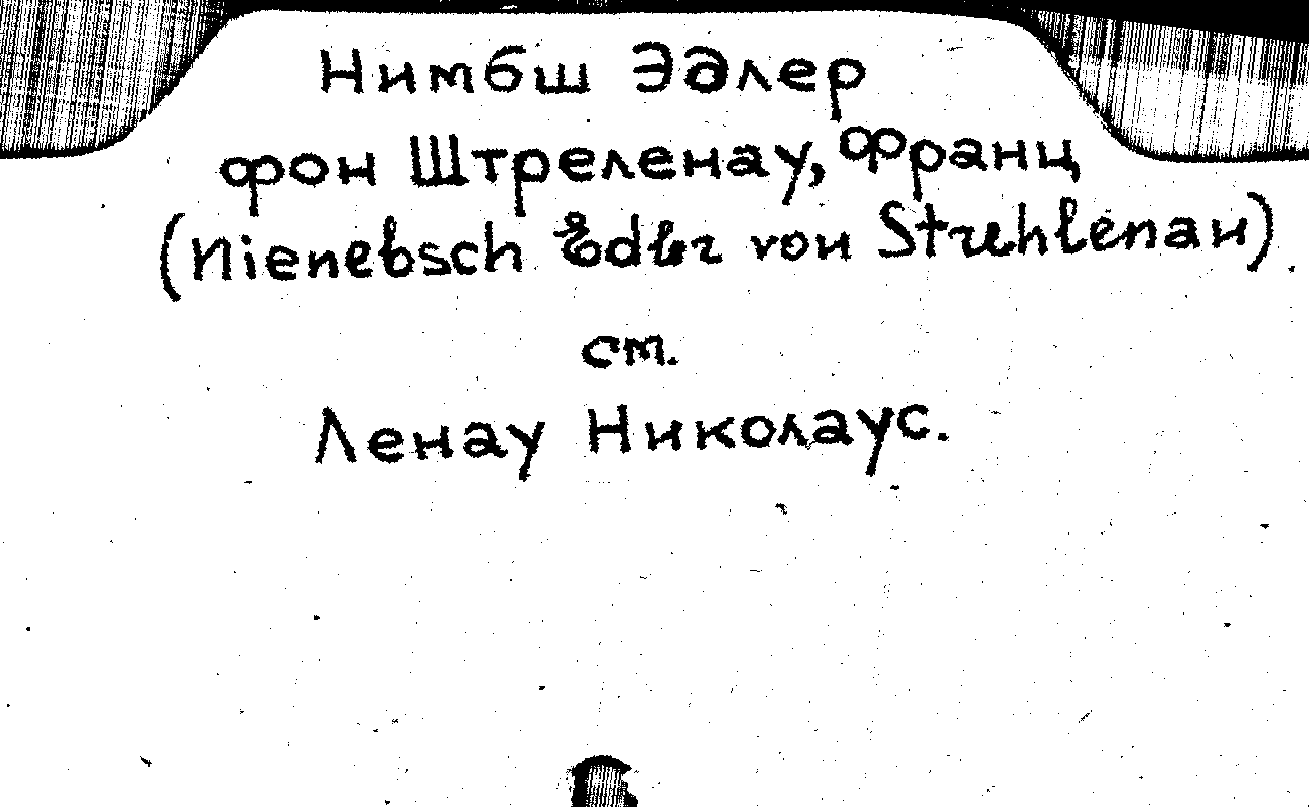 Нимбш Эдлер
фон Штреленау, Франц
(Nienebsch Edler von Strehlenau)
ст.
Ленау Николаус.